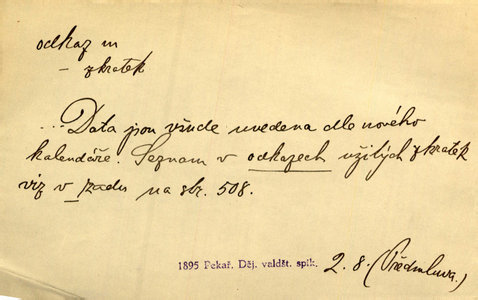 odkaz m
– zkratek
... Data jsou všude uvedena dle nového
kalendáře. Seznam v odkazech užitých zkratek
viz v zadu na str. 508.
1895 Pekař. Děj. valdšt. spik. 2. 8. (Předmluva.)